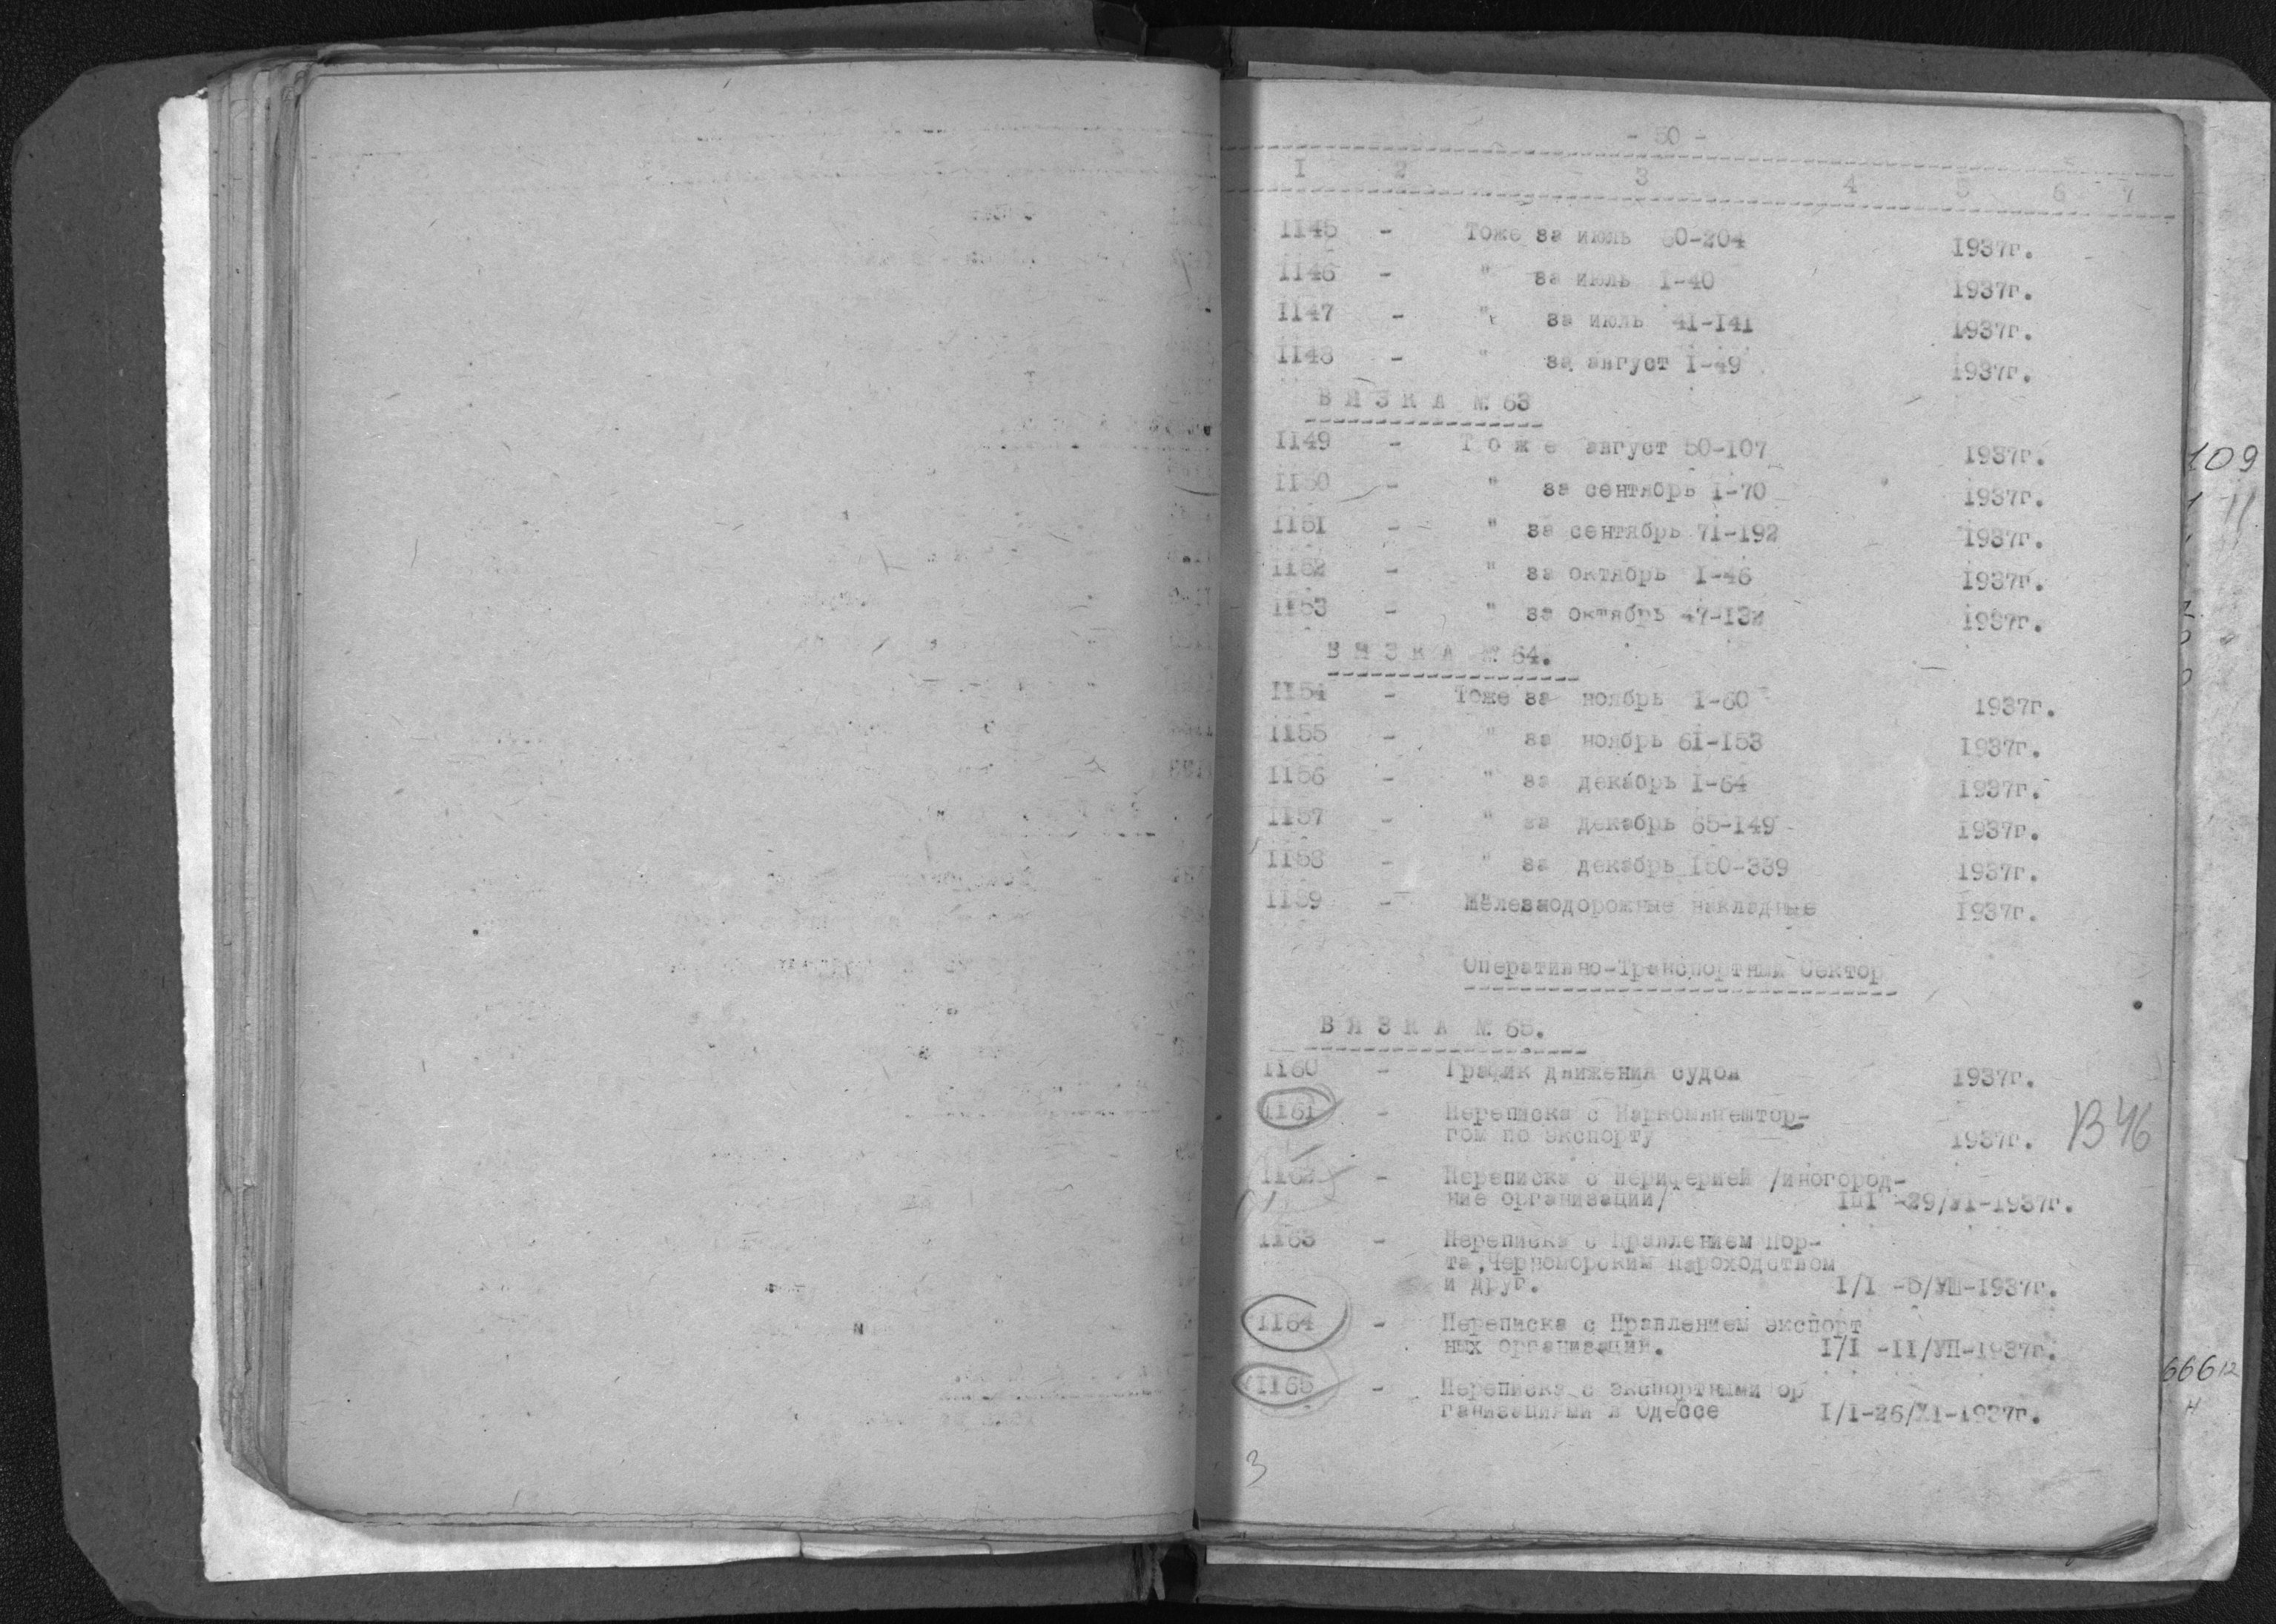 - 50 -
I 2 3 4 5 6 7
II45 - Тоже за июль 60-204 1937г.
II46 - " за июль I-40 1937г.
II47 - " за июль 41-I41 1937г.
II48 - " за август I-49 1937г.
В Я З К А № 63
II49 - Т о ж е август 50-107 1937г.
II50 - " за сентябрь I-70 1937г.
II5I - " за сентябрь 7I-I92 1937г.
II52 - " за октябрь I-46 1937г.
II53 - " за октябрь 47-I32 1937г.
В Я З К А № 64.
II54 - Тоже за ноябрь I-60 1937г.
II55 - " за ноябрь 6I-I53 1937г.
II56 - " за декабрь I-64 1937г.
II57 - " за декабрь 65-I49 1937г.
II58 - " за декабрь I50-339 1937г.
II59 - Железнодорожные накладные 1937г.
Оперативно-Транспортный Сектор
В Я З К А № 65.
II60 - График движения судов 1937г.
II6I - Переписка с Наркомвнештор-
гом по экспорту 1937г. В46
II62 - Переписка с периферией /иногород-
ние организации/ -29/XI-1937г.
II63 - Переписка с Правлением Пор-
та, Черноморским Пароходством
и друг. I/I -5/УШ-1937г.
II64 - Переписка с Правлением экспорт
ных организаций. I/I -II/УП-1937г.
II65 - Переписка с экспортными ор
ганизациями в Одессе I/I-26/XI-1937г.
3
109
11
666